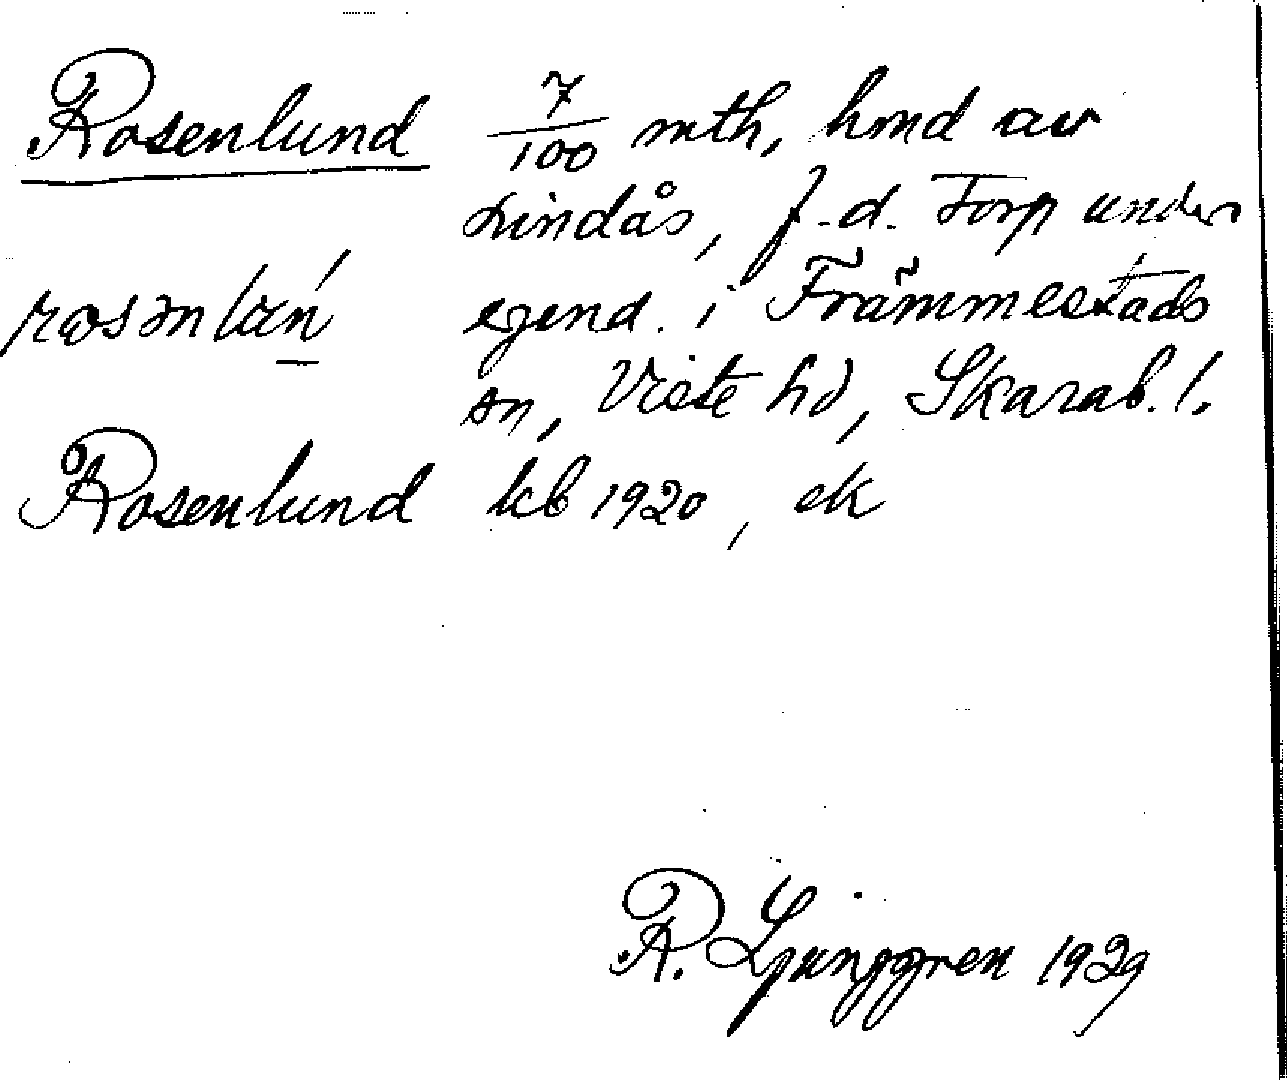 Rosenlund 7/100 mth, hmd av
Lindås, f.d. Torp under
egend. i Främmestads
sn, Viste hd, Skarab. l.
Rosenlund kb 1920, ek
R. Ljunggren 1929